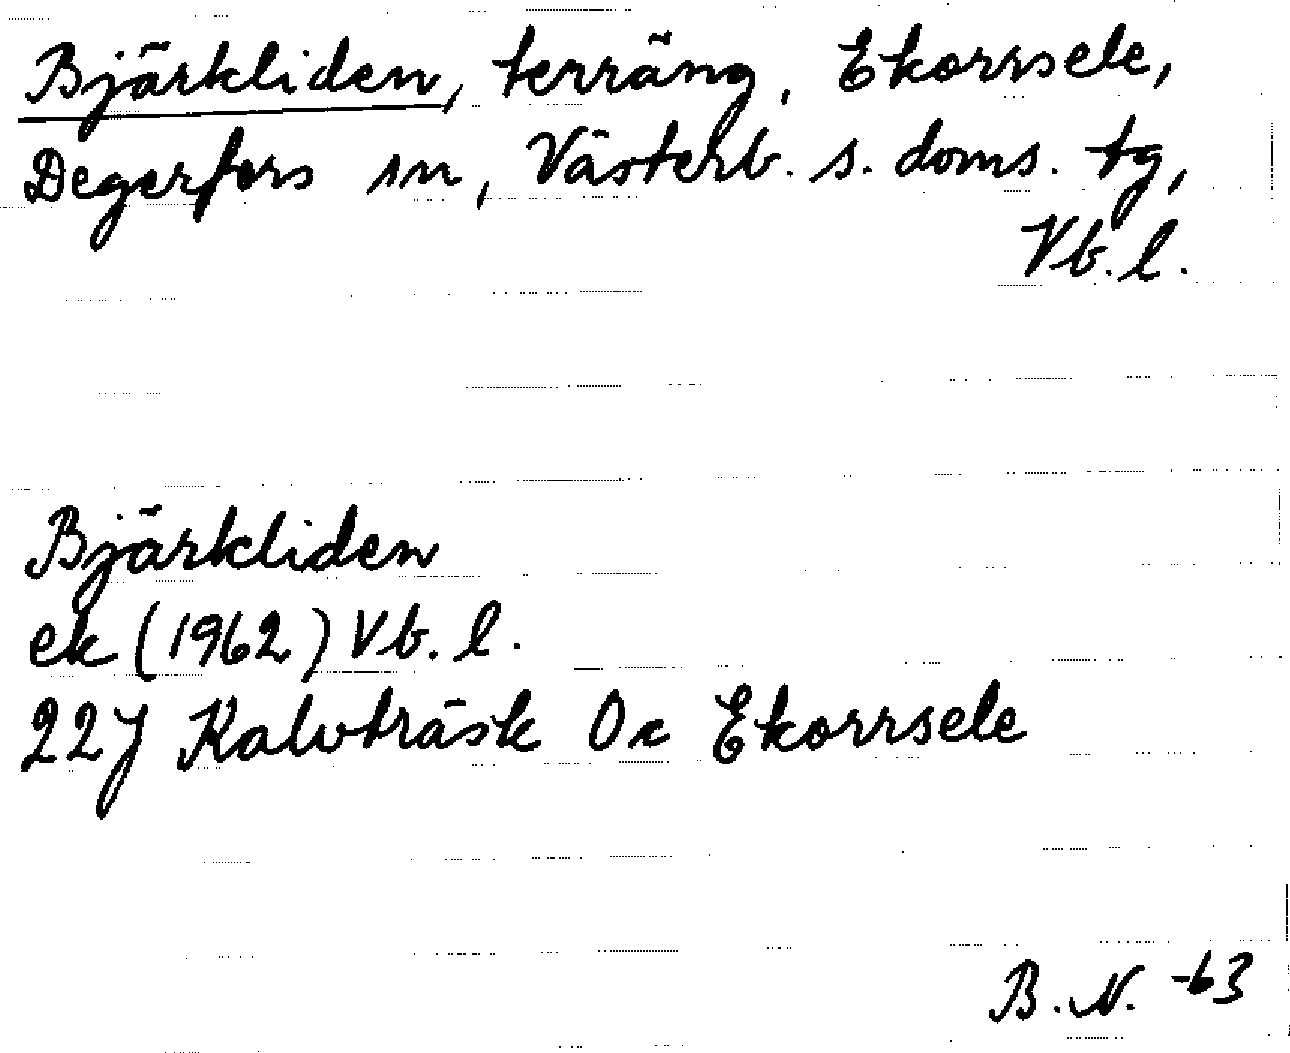 Bjärkliden, terräng, Ekorrsele,
Degerfors sn, Västerb. s. doms. tg,
Vb. l.
Bjärkliden
ek (1962) Vb. l.
22J Kalvträsk 0c Ekorrsele
B. N. -63